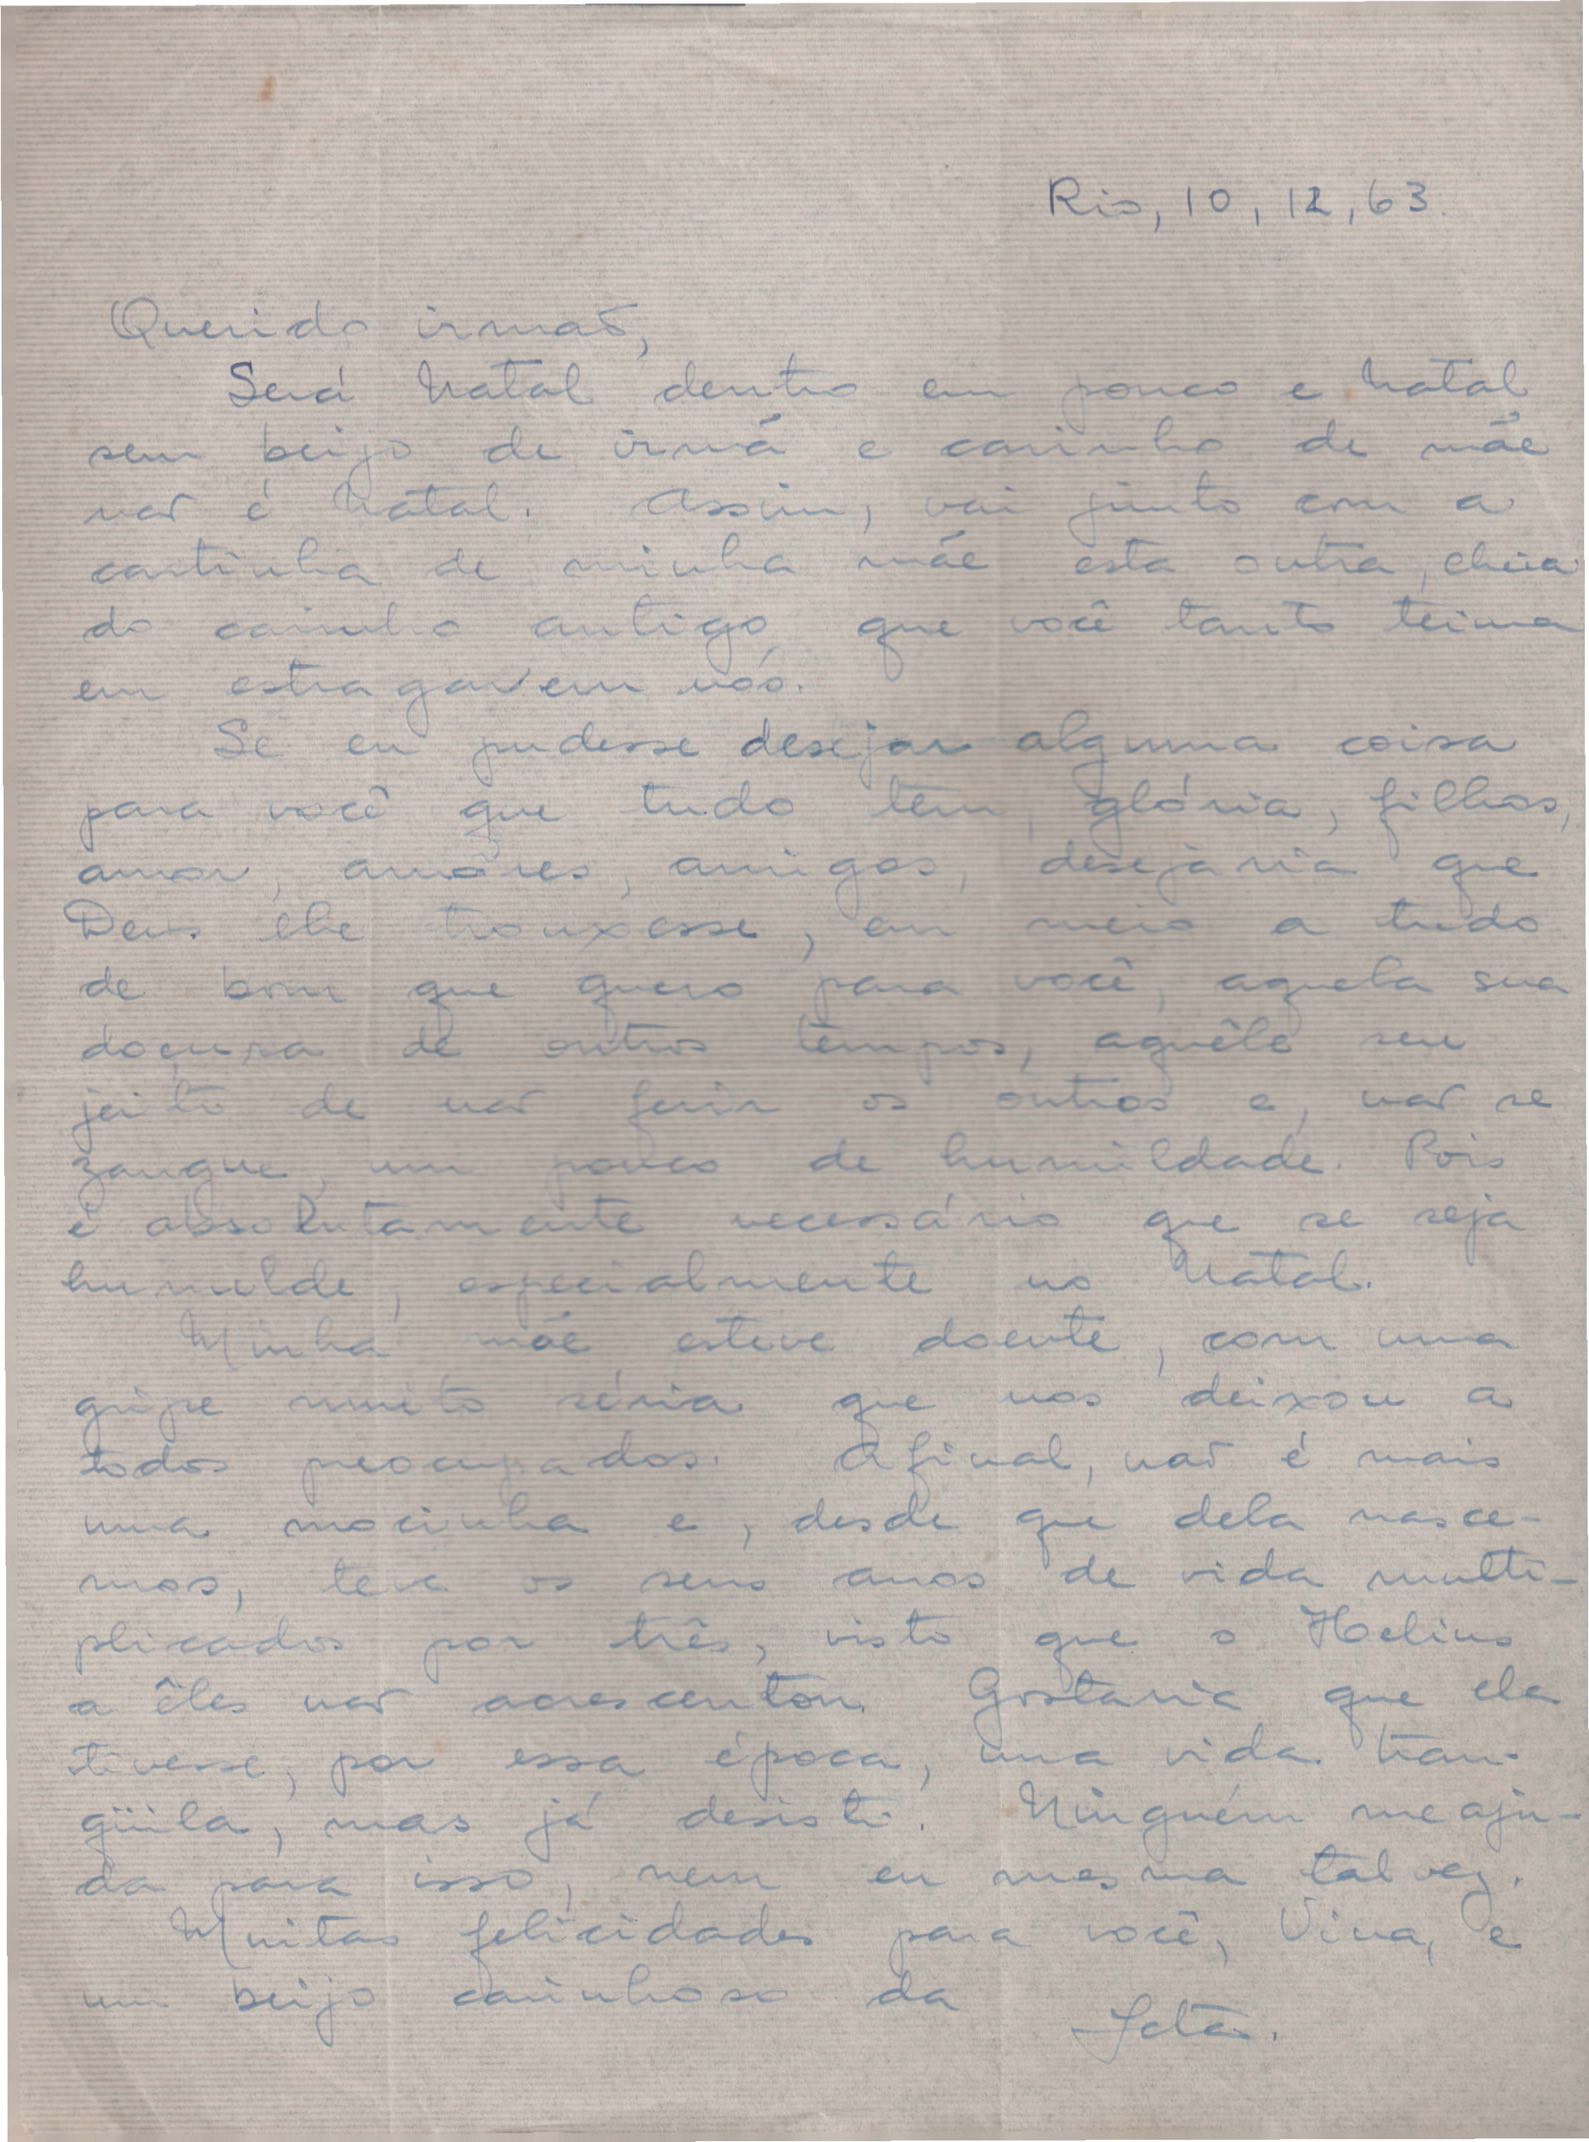 Rio, 10, 12, 63.
Querido irmaõ,
Será Natal dentro em pouco e Natal
sem beijo de irmã e carinho de mãe
naõ é Natal. Assim, vai junto com a
cartinha de minha mãe esta outra, cheia
do carinho antigo que você tanto teima
em estragar em nós.
Se eu pudesse desejar alguma coisa
para você que tudo tem, glória, filhos,
amor, amôres, amigos, desejaria que
Deus lhe trouxesse, em meio a tudo
de bom que quero para você, aquela sua
doçura de outros tempos, aquêle seu
jeito de naõ ferir os outros e, naõ se
zangue, um pouco de humildade. Pois
é absolutamente necessário que se seja
humilde, especialmente no Natal.
Minha mãe esteve doente, com uma
gripe muito séria que nos deixou a
todos preocupados. Afinal, naõ é mais
uma mocinha e, desde que dela nasce-
mos, teve os seus anos de vida multi-
plicados por três, visto que o Helius
a êles naõ acrescentou. Gostaria que ela
tivesse, por essa época, uma vida tran-
qüila, mas já desisti. Ninguém me aju-
da para isso, nem eu mesma talvez.
Muitas felicidades para você, Vina, e
um beijo carinhoso da
Leta.